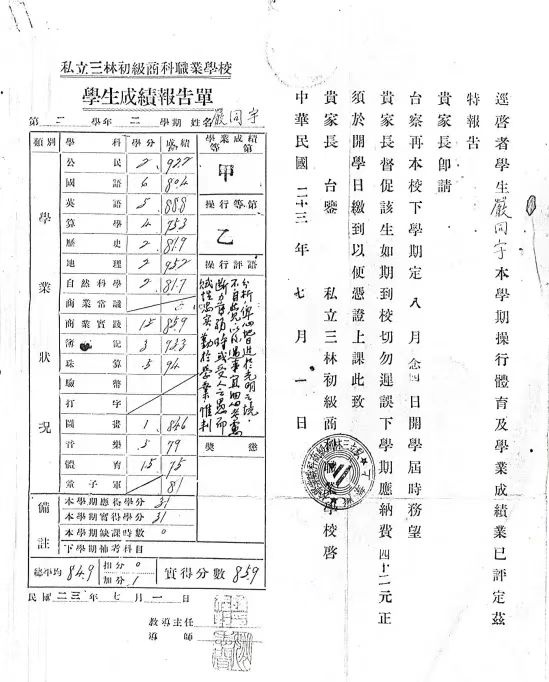 私立三林初級商科職業學校
學生成績報告單
第二學年二學期 姓名 嚴同宇
類別 學科 學分 成績 學業成績等第
公民 2 92.2 甲
國語 6 80.4
英語 5 88.8 操行等第
算學 4 75.3 乙
歷史 2 81.9
地理 2 95.2 操行評語
自然科學 2 81.7
商業常識
商業實踐 1.5 85.9
簿記 3 93.3
珠算 .5 94
驗幣
打字
圖畫 1 84.6
音樂 .5 79 獎懲
體育 1.5 75
童子軍 81
學業狀況
備註
本學期應得學分 31
本學期實得學分 31
本學期缺課時數 0
下學期補考科目
總平均 84.9 扣分 0 加分 1 實得分數 85.9
民國二三年七月一日
教導主任
導師
逕啓者學生嚴同宇本學期操行體育及學業成績業已評定茲
特報告
貴家長卽請
台察再本校下學期定八月念四日開學屆時務望
貴家長督促該生如期到校切勿遲誤下學期應納費四十二元正
須於開學日繳到以便憑證上課此致
貴家長 台鑒 私立三林初級商
學校啓
中華民國二十三年七月一日